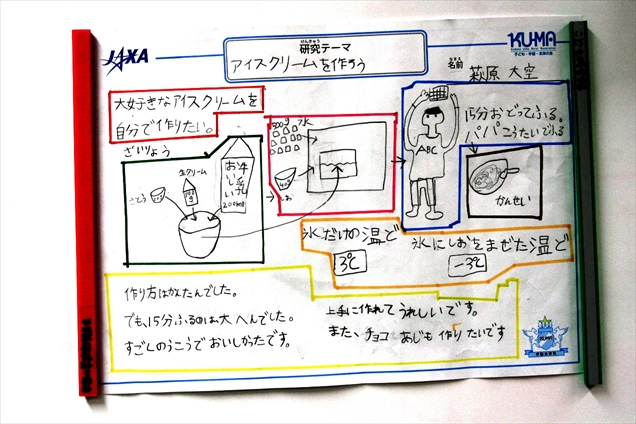 JAXA
けんきゅう
研究テーマ
アイスクリームを作ろう
KUMA
なまえ
名前 萩原 大空
大好きなアイスクリームを
自分で作りたい。
ざいりょう
さとう
生クリーム
おいしい牛乳
200ml
500g 氷
しお
ABC
15分おどってふる。
パパこうたいでふる
かんせい
氷だけの温ど
3℃
氷にしおをまぜた温ど
-3℃
作り方はかんたんでした。
でも、15分ふるのは大へんでした。
すごくのうこうでおいしかったです。
上手に作れてうれしいです。
また、チョコあじも作りたいです
KUMA